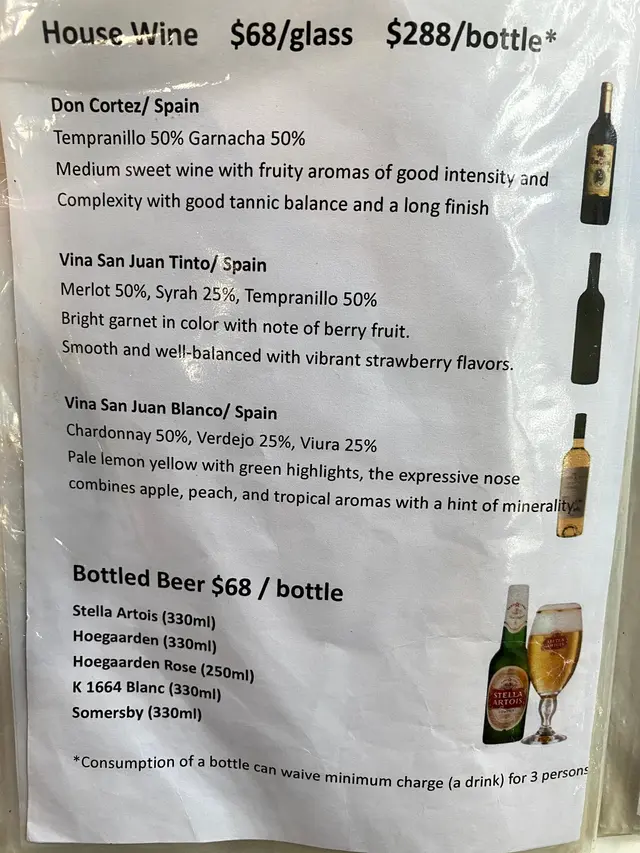 House Wine $68/glass $288/bottle*
Don Cortez/ Spain
Tempranillo 50% Garnacha 50%
Medium sweet wine with fruity aromas of good intensity and
Complexity with good tannic balance and a long finish
Vina San Juan Tinto/ Spain
Merlot 50%, Syrah 25%, Tempranillo 50%
Bright garnet in color with note of berry fruit.
Smooth and well-balanced with vibrant strawberry flavors.
Vina San Juan Blanco/ Spain
Chardonnay 50%, Verdejo 25%, Viura 25%
Pale lemon yellow with green highlights, the expressive nose
combines apple, peach, and tropical aromas with a hint of minerality.
Bottled Beer $68 / bottle
Stella Artois (330ml)
Hoegaarden (330ml)
Hoegaarden Rose (250ml)
K 1664 Blanc (330ml)
Somersby (330ml)
STELLA
ARTOIS
*Consumption of a bottle can waive minimum charge (a drink) for 3 persons